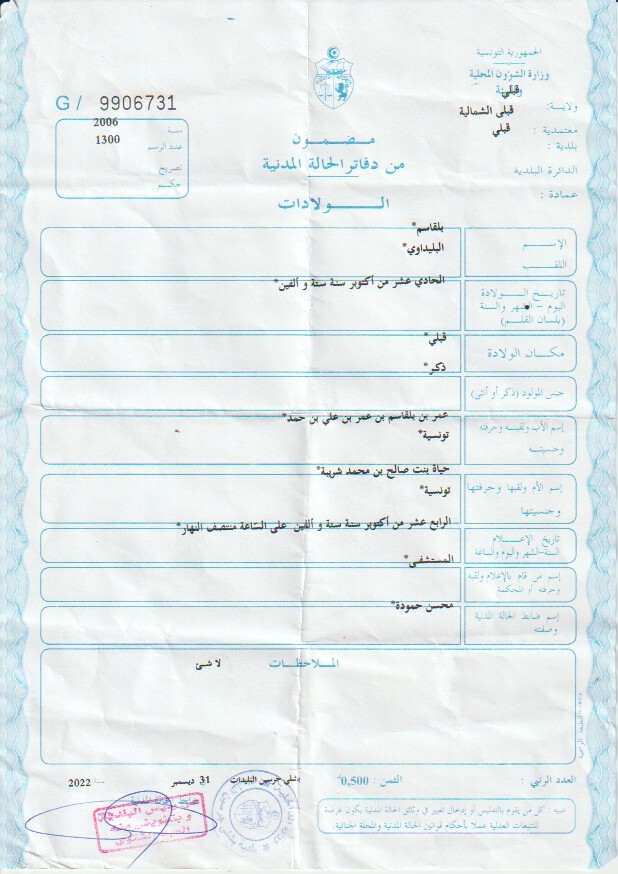 الجمهورية التونسية
وزارة الشؤون المحلية
والبيئة
قبلي
ولاية:
قبلى الشمالية
معتمدية :
قبلي
بلدية :
الدائرة البلدية
عمادة :
G / 9906731
سنة 2006
عدد الرسم 1300
تصريح
حكم
مضمون
من دفاتر الحالة المدنية
الولادات
بلقاسم*
الإسم
البليداوي*
اللقب
الحادي عشر من أكتوبر سنة ستة و ألفين*
تاريخ الولادة
اليوم - الشهر والسنة
(بلسان القلم)
قبلي*
مكان الولادة
ذكر*
جنس المولود (ذكر أو أنثى)
عمر بن بلقاسم بن عمر بن علي بن حمد*
إسم الأب ولقبه وحرفته
تونسية*
وجنسيته
حياة بنت صالح بن محمد شريبة*
إسم الأم ولقبها وحرفتها
تونسية*
وجنسيتها
الرابع عشر من أكتوبر سنة ستة و ألفين على السّاعة منتصف النهار*
تاريخ الإعلام
السنة-الشهر واليوم والساعة
المستشفى*
إسم من قام بالإعلام ولقبه
وحرفته أو المحكمة
محسن حمودة*
إسم ضابط الحالة المدنية
وصفته
الملاحظات
لا شئ
المطبعة الرسمية
العدد الرتبي :
الثمن : 0,500د
جرسين البليدات 31 ديسمبر سنة 2022
تنبيه : كل من يقوم بالتدليس أو إدخال تغيير في وثائق الحالة المدنية يكون عرضة
للتتبعات العدلية عملا بأحكام قوانين الحالة المدنية والمجلة الجنائية